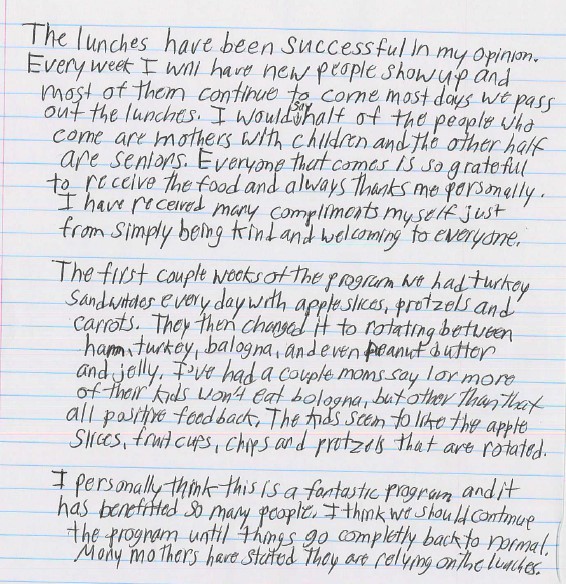 The lunches have been successful in my opinion.
Every week I will have new people show up and
most of them continue to come most days we pass
out the lunches. I would say half of the people who
come are mothers with children and the other half
are seniors. Everyone that comes is so grateful
to receive the food and always thanks me personally.
I have received many compliments myself just
from simply being kind and welcoming to everyone.
The first couple weeks of the program we had turkey
sandwitches every day with apple slices, pretzels and
carrots. They then changed it to rotating between
ham, turkey, balogna, and even peanut butter
and jelly. I've had a couple moms say 1 or more
of their kids won't eat bologna, but other than that
all positive feedback. The kids seem to like the apple
slices, fruit cups, chips and pretzels that are rotated.
I personally think this is a fantastic program and it
has benefitted so many people. I think we should continue
the program until things go completly back to normal.
Many mothers have stated they are relying on the lunches.